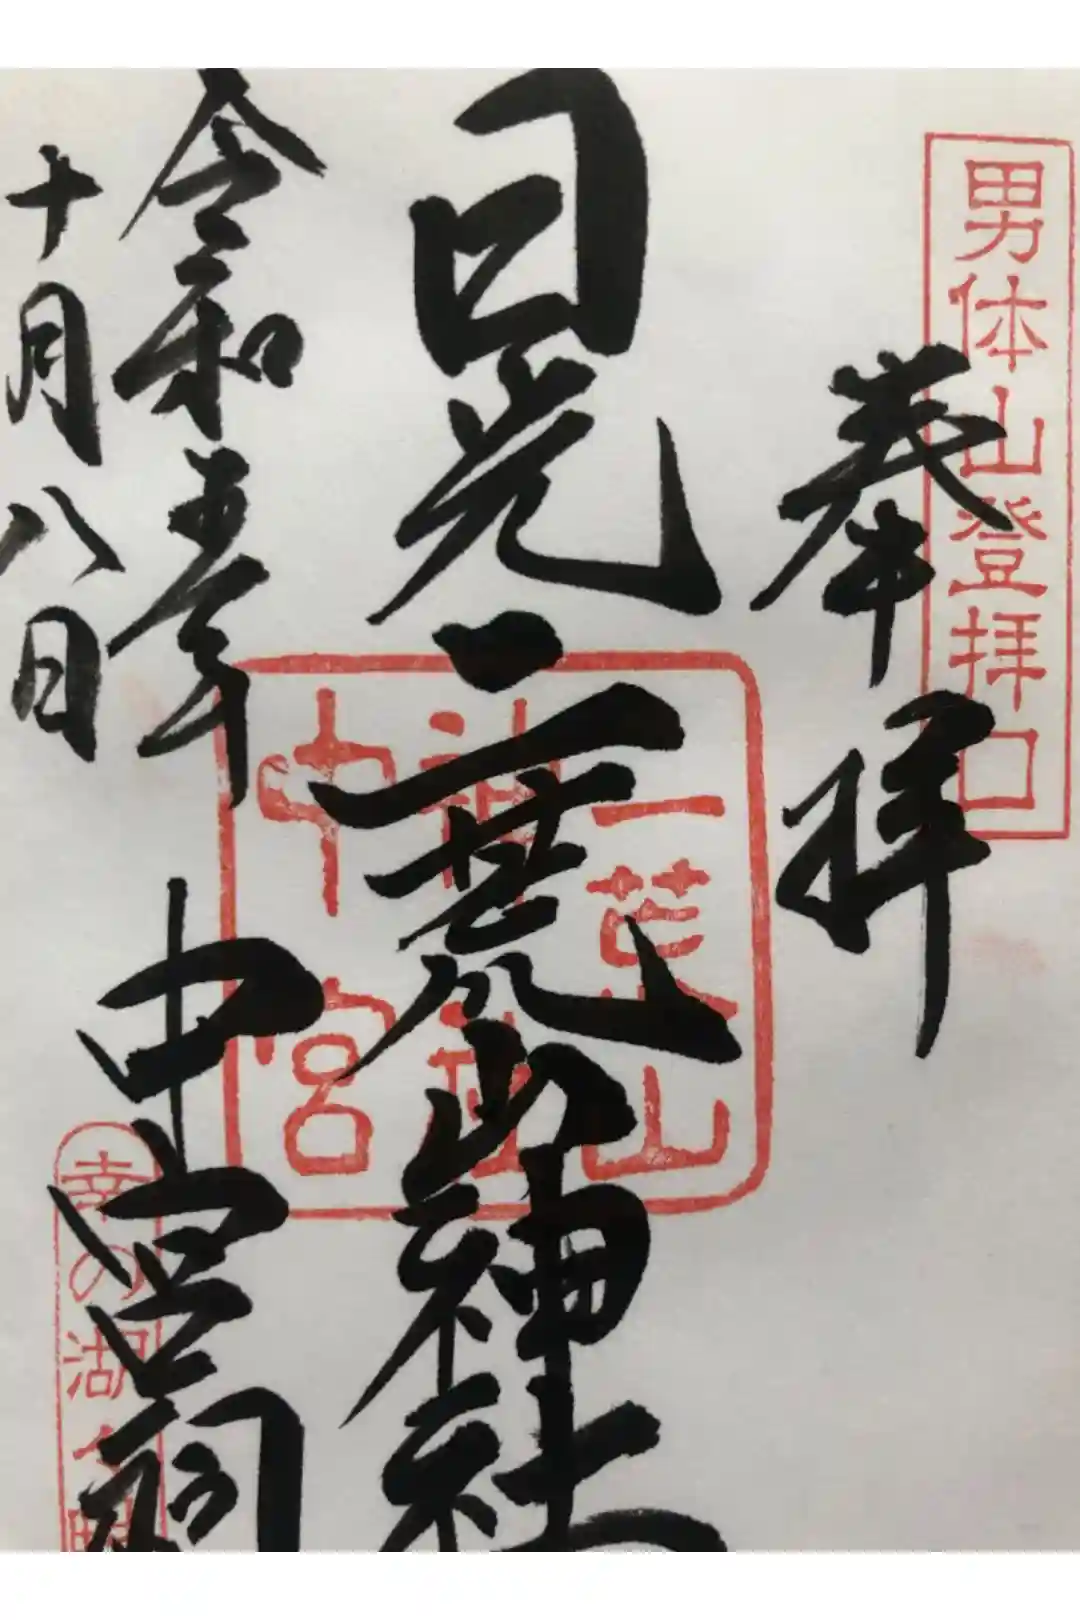 男体山登拝口
奉拝
日光二荒山神社
二荒山
神社
中宮
令和五年
十月八日
中宮祠
幸の湖